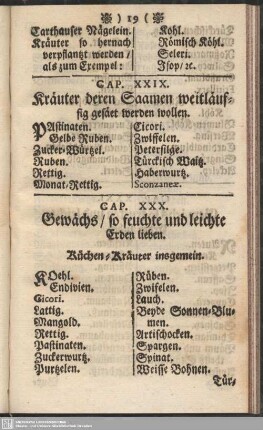 ) 19 (
Carthauser Nägelein.
Kräuter so hernach
verpflantzt werden /
als zum Exempel:
Kohl.
Römisch Köhl.
Seleri.
Isop / ꝛc.
CAP. XXIX.
Kräuter deren Saamen weitläuf-
fig gesäet werden wollen.
PAstinaten.
Gelbe Ruben.
Zucker-Würtzel.
Ruben.
Rettig.
Monat-Rettig.
Cicori.
Zwiffelen.
Petersilge.
Türckisch Waitz.
Haberwurtz.
Sconzaneæ.
CAP. XXX.
Gewächs / so feuchte und leichte
Erden lieben.
Küchen-Kräuter insgemein.
KOehl.
Endivien.
Cicori.
Lattig.
Mangold.
Rettig.
Pastinaten.
Zuckerwurtz.
Purtzelen.
Rüben.
Zwifelen.
Lauch.
Beyde Sonnen-Blu-
men.
Artischocken.
Spargen.
Spinat.
Weisse Bohnen.
Tür-